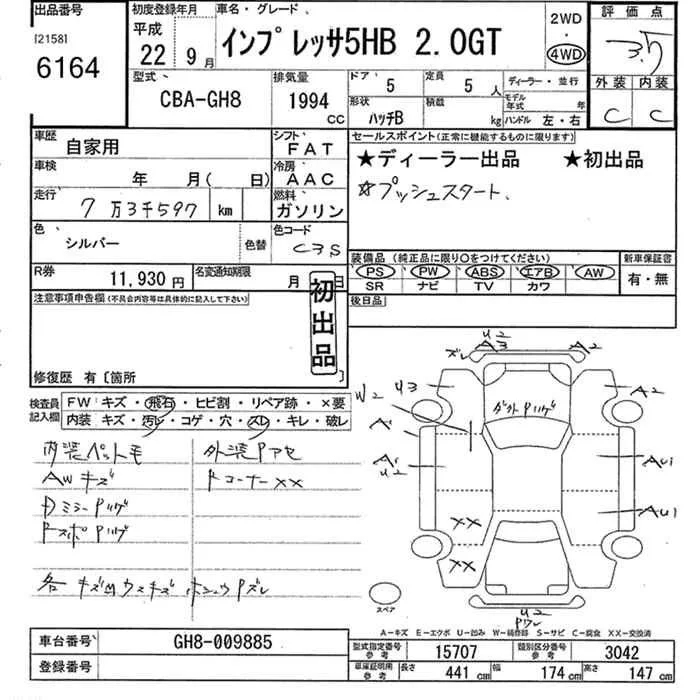 出品番号 初度登録年月 車名・グレード、 2WD 評価点
[2158] 平成
6164 22 9月 インプレッサ5HB 2.0GT 4WD 3.5
型式、 排気量 ドア 5 定員 5人 ディーラー・並行 外装 内装
CBA-GH8 1994 CC 形状 ハッチB 積載 kg モデル年式 年 C C
ハンドル 左・右
車歴 自家用 シフト FAT セールスポイント(正常に機能するものに限ります)
車検 年 月( 日) 冷房 AAC ★ディーラー出品 ★初出品
走行、 7万3千597 km 燃料 ガソリン ☆プッシュスタート、
色、 シルバー 色替 色コード C3S
装備品(純正品に限り○をつけてください) 新車保証書
R券 11,930円 名変通知期限 月 日 PS PW ABS エアB AW 有・無
SR ナビ TV カワ
注意事項申告欄(不具合内容等は具体的に記入して下さい) 初出品 後日品
修復歴 有〔箇所
検査員記入欄 FW キズ・飛石・ヒビ割・リペア跡・×要
内装 キズ・汚レ・コゲ・穴・スレ・キレ・破レ
内装ペットモ 外装Pアセ
AWキズ Rコーナー××
DミラーPハゲ
RスポPハゲ
各キズ凹ウスキズ
U2
ズレ A3 A2
W2 U3 ダクトPハゲ A2
A1
A1 U2 AU1
×× AU1
××
スペア U2
Pワレ
A-キズ E-エクボ U-凹み W-補修跡 S-サビ C-腐食 XX-交換済
車台番号 GH8-009885 型式指定番号 参考 15707 類別区分番号 参考 3042
登録番号 車庫証明用 参考 長さ 441 cm 幅 174 cm 高さ 147 cm